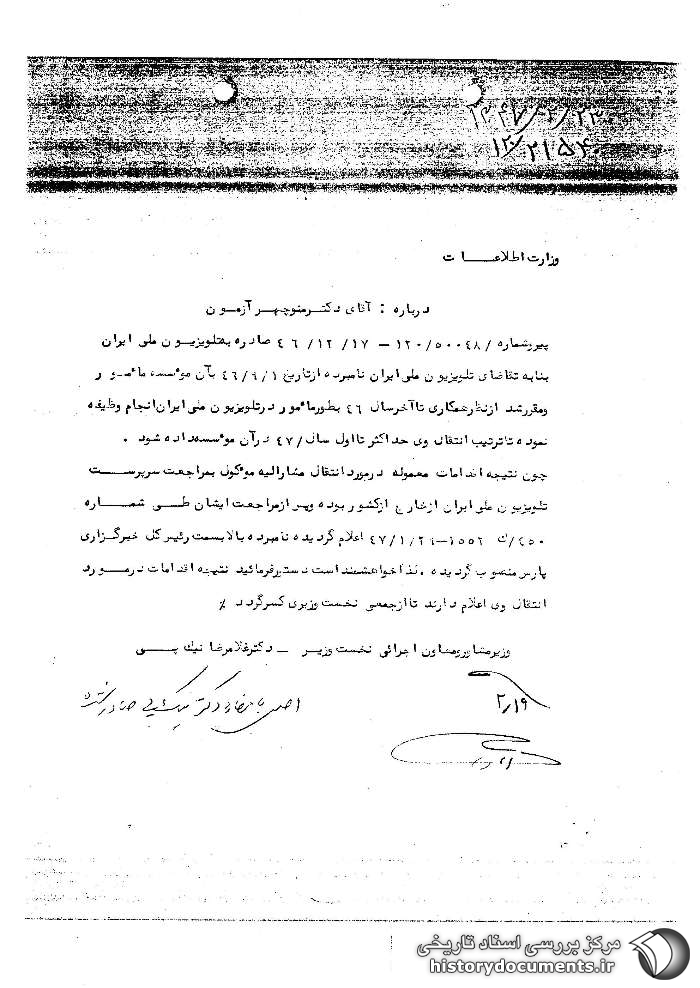 ۱۳۴۷/۲/۲۳
۱۲/۲۱۵۴۰
وزارت اطلاعـــــا ت
درباره : آقای دکتـرمنوچهـر آزمـــون
پیروشماره /۱۲۰/۵۰۰۴۸ – ۱۷ /۱۲ /۴۶ صادره بتلویزیــون ملی ایران
بنابه تقاضای تلویزیون ملی ایران نامبرده ازتاریخ ۴۶/۹/۱ بآن مؤسسه مأمــور
ومقررشد ازنظرهمکاری تاآخرسال ۴۶ بطورمأمور درتلویزیون ملی ایران انجام وظیفه
نموده تاترتیب انتقال وی حداکثر تااول سال/۴۷ درآن مؤسسه داده شود .
چون نتیجه اقدامات معموله درمورد انتقال مشارالیه موکول بمراجعت سرپرســت
تلویزیون ملی ایران ازخارج ازکشور بوده وپس ازمراجعت ایشان طـــی شمــاره
۴۵۰/ك ۱۵۵۲–۴۷/۱/۲۶ اعلام گردیده نامبرده بالابسمت رئیس کل خبرگزاری
پارس منصوب گردیده ،لذا خواهشمند است دستورفرمائید نتیجه اقدامات درمــورد
انتقال وی اعلام دارند تاازجمعی نخست وزیری کسرگردد ٪
وزیرمشاورومعاون اجرائی نخست وزیــر – دکترغلامرضا نیك پـــی
اصل با امضاء دکتر نیک پی صادر شده
۲/۱۹
مرکز بررسی اسناد تاریخی
historydocuments.ir